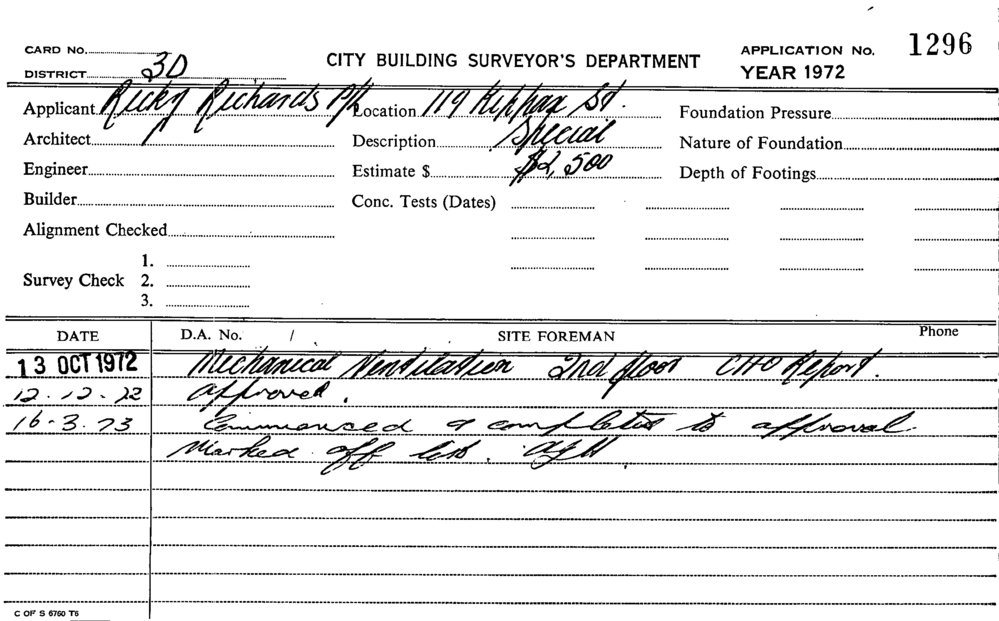 CARD No.
DISTRICT 3D
CITY BUILDING SURVEYOR'S DEPARTMENT
APPLICATION No. 1296
YEAR 1972
Applicant Ricky Richards P/L Location 119 Kippax St. Foundation Pressure
Architect Description Special Nature of Foundation
Engineer Estimate $ $2,500 Depth of Footings
Builder Conc. Tests (Dates)
Alignment Checked
1.
Survey Check 2.
3.
DATE D.A. No. / SITE FOREMAN Phone
13 OCT 1972 Mechanical Ventilation 2nd floor CHO Report.
12.12.72 Approved.
16.3.73 Commenced & completed to approval.
Marked off
C OF S 6760 T6